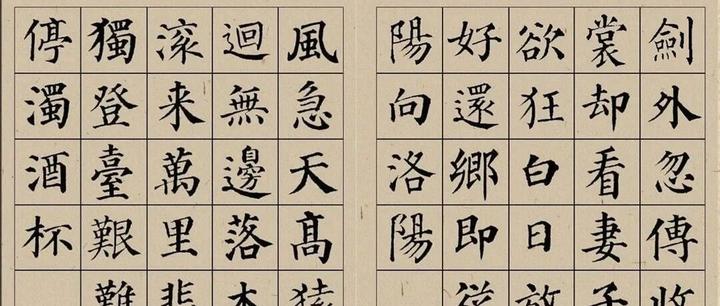 劍外忽傳收
裳却看妻子
欲狂白日放
好還鄉即從
陽向洛陽
風急天高猿
迴無邊落木
滾来萬里悲
獨登臺艱難
停濁酒杯